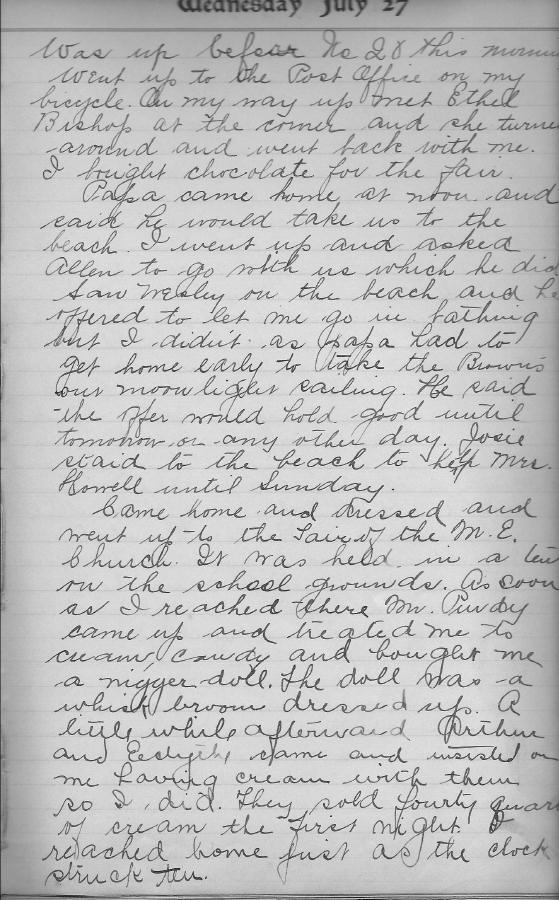 Wednesday July 27
Was up before No 28 this mornin
went up to the Post Office on my
bicycle. On my way up met Ethel
Bishop at the corner and she turne
around and went back with me.
I bought chocolate for the fair.
Papa came home at noon and
said he would take us to the
beach. I went up and asked
Allen to go with us which he did
Saw Wesley on the beach and he
offered to let me go in bathing
but I didnit as papa had to
get home early to take the Browns
out moonlight sailing. He said
the offer would hold good until
tomorrow or any other day. Josie
staid to the beach to help Mrs.
Howell until Sunday.
Came home and dressed and
went up to the Fair of the M. E.
Church. It was held in a ten
on the school grounds. As soon
as I reached there Mr. Purdy
came up and treated me to
cream, candy and bought me
a nigger doll. The doll was a
whisk broom dressed up. A
little while afterward Arthur
and came and insisted on
me having cream with them
so I did. They sold fourty quar
of cream the first night. I
reached home just as the clock
struck ten.